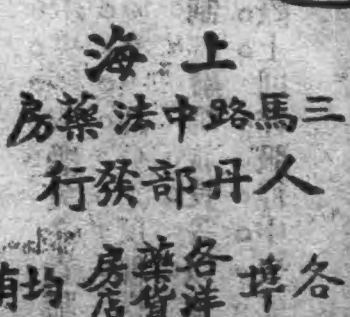 上海
三馬路中法藥房
人丹部發行
各埠各洋藥貨房店均有